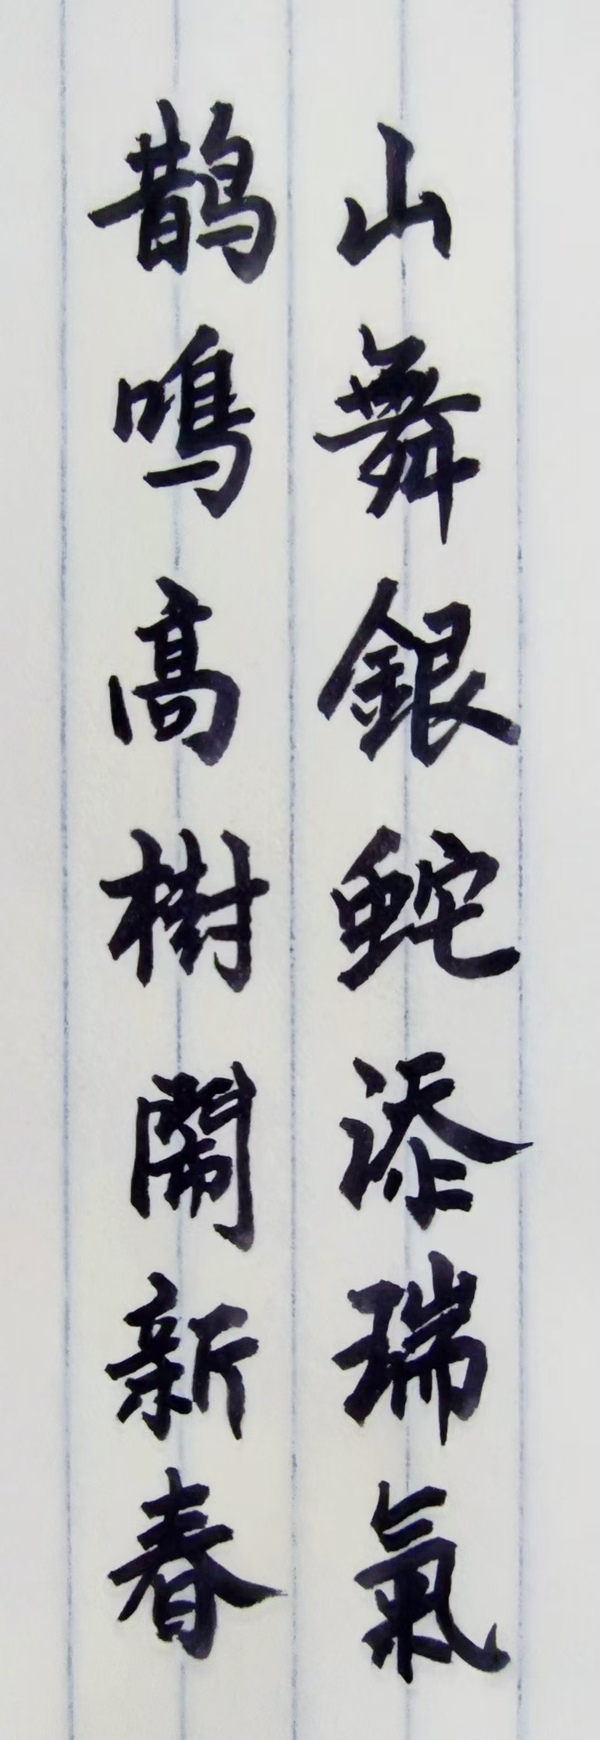 山舞銀蛇添瑞氣
鵲鳴高樹鬧新春